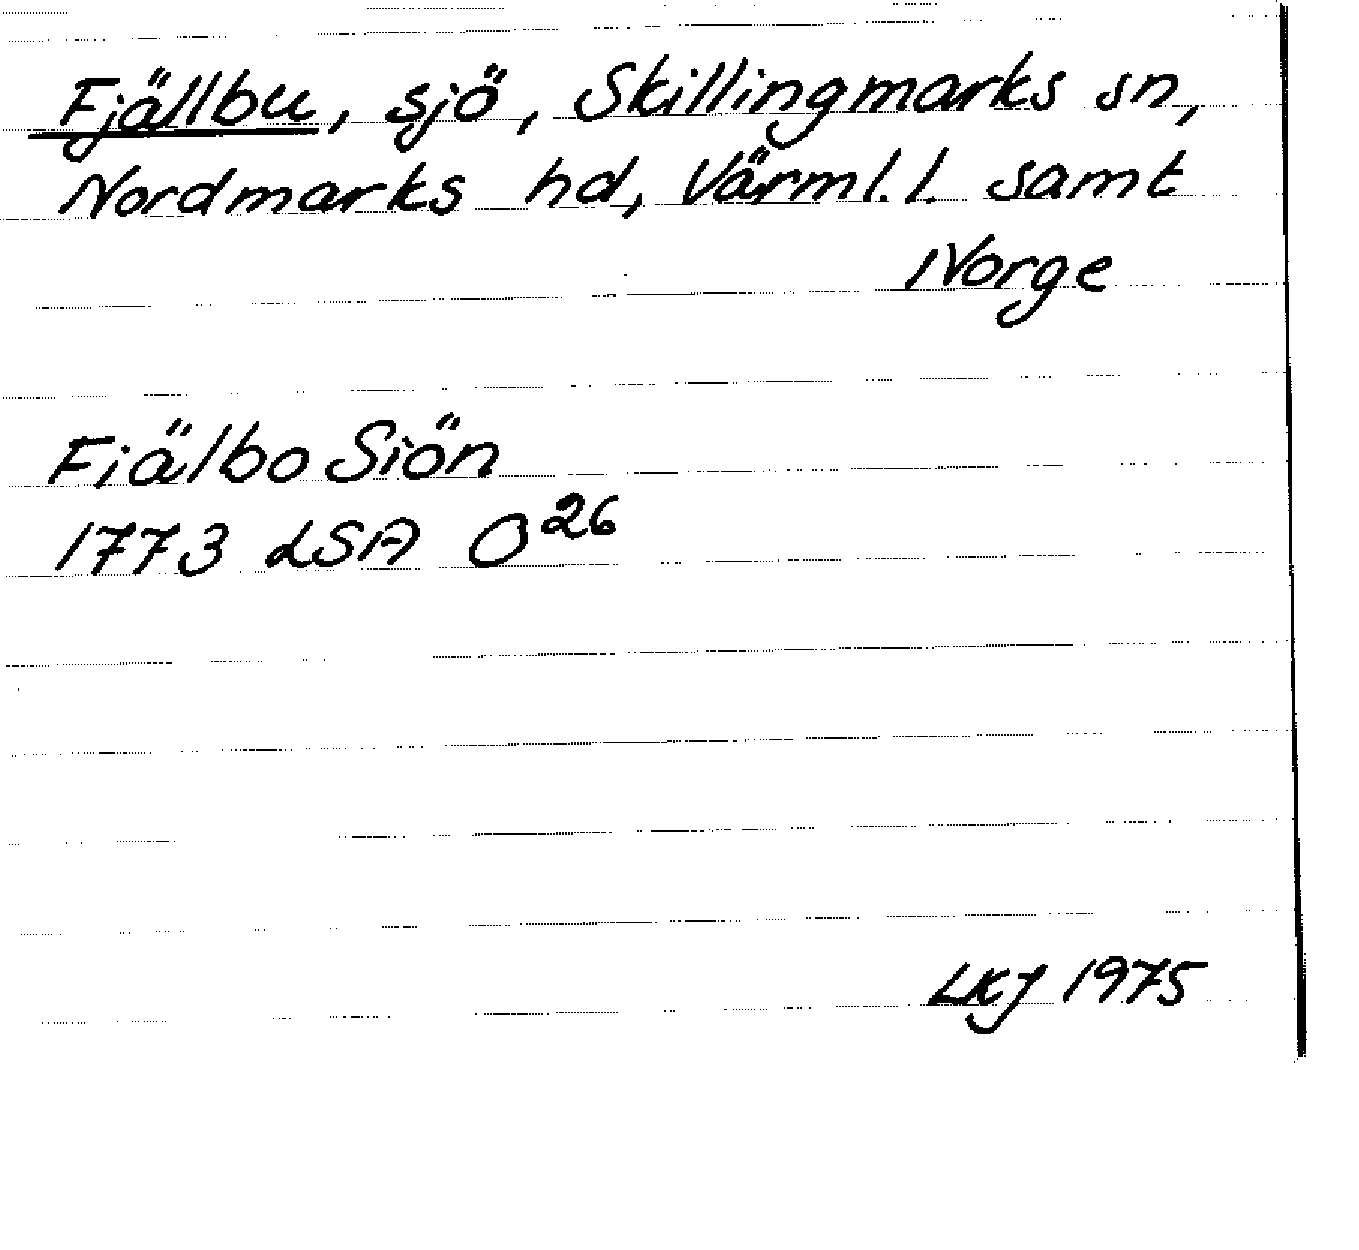 Fjällbu, sjö, Skillingmarks sn,
Nordmarks hd, Värml. l. samt
Norge
Fiälbo Siön
1773 LSA O26
LKJ 1975